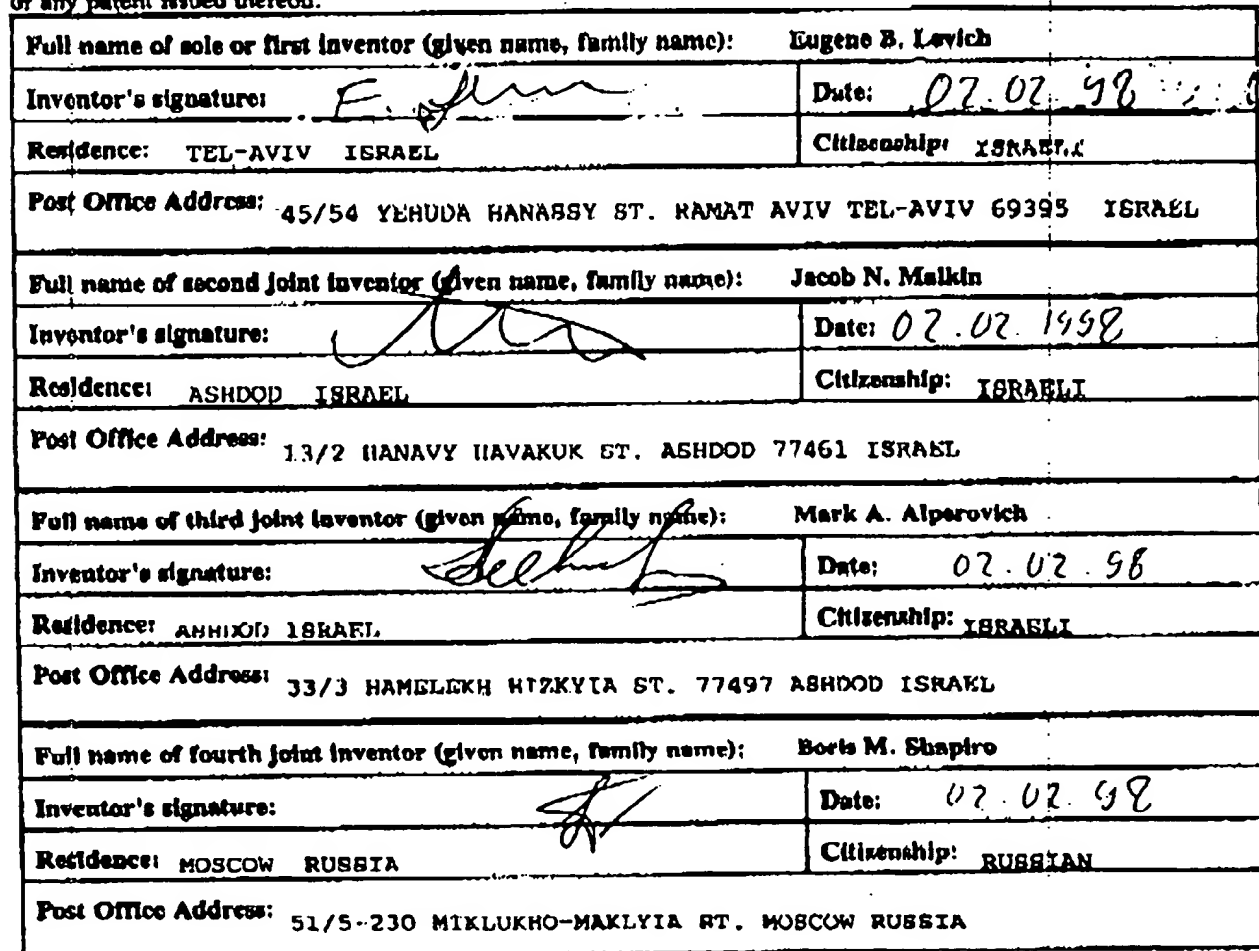 or any patent issued thereon.
Full name of sole or first inventor (given name, family name): Eugene B. Levich
Inventor's signature: E. Date: 02.02 98
Residence: TEL-AVIV ISRAEL Citizenship: ISRAELI
Post Office Address: 45/54 YEHUDA HANASSY ST. RAMAT AVIV TEL-AVIV 69395 ISRAEL
Full name of second joint inventor (given name, family name): Jacob N. Malkin
Inventor's signature: Date: 02.02.1998
Residence: ASHDOD ISRAEL Citizenship: ISRAELI
Post Office Address: 13/2 HANAVY HAVAKUK ST. ASHDOD 77461 ISRAEL
Full name of third joint inventor (given name, family name): Mark A. Alperovich
Inventor's signature: Date: 02.02.98
Residence: ASHDOD ISRAEL Citizenship: ISRAELI
Post Office Address: 33/3 HAMELEKH HIZKYIA ST. 77497 ASHDOD ISRAEL
Full name of fourth joint inventor (given name, family name): Boris M. Shapiro
Inventor's signature: Date: 02.02.98
Residence: MOSCOW RUSSIA Citizenship: RUSSIAN
Post Office Address: 51/5-230 MIKLUKHO-MAKLYIA ST. MOSCOW RUSSIA